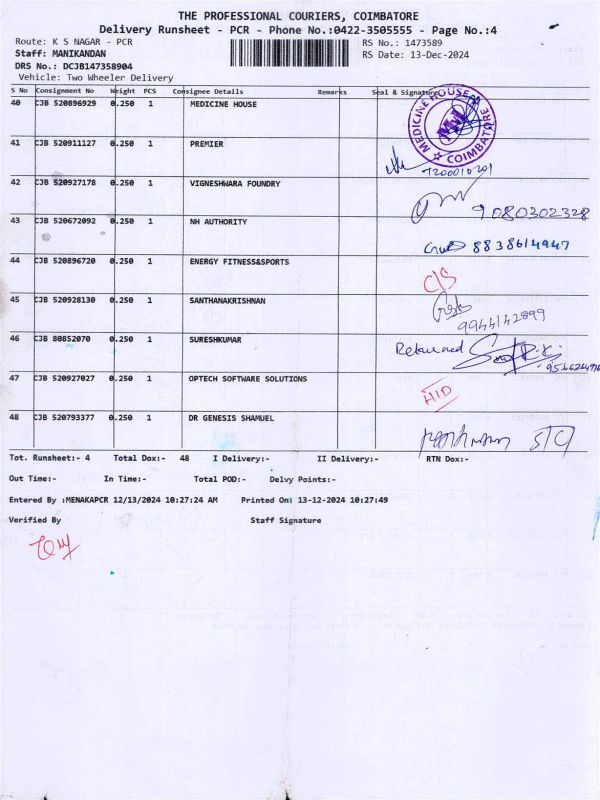 THE PROFESSIONAL COURIERS, COIMBATORE
Delivery Runsheet - PCR - Phone No.:0422-3505555 - Page No.:4
Route: K S NAGAR - PCR RS No.: 1473589
Staff: MANIKANDAN RS Date: 13-Dec-2024
DRS No.: DCJB147358904
Vehicle: Two Wheeler Delivery
S No Consignment No Weight PCS Consignee Details Remarks Seal & Signature
40 CJB 520896929 0.250 1 MEDICINE HOUSE
MEDICINE HOUSE COIMBATORE
41 CJB 520911127 0.250 1 PREMIER
7200010201
42 CJB 520927178 0.250 1 VIGNESHWARA FOUNDRY
9080302328
43 CJB 520672092 0.250 1 NH AUTHORITY
8838614947
44 CJB 520896720 0.250 1 ENERGY FITNESS&SPORTS
C/S
45 CJB 520928130 0.250 1 SANTHANAKRISHNAN
9944142899
46 CJB 80852070 0.250 1 SURESHKUMAR
Returned
47 CJB 520927027 0.250 1 OPTECH SOFTWARE SOLUTIONS
H/D
48 CJB 520793377 0.250 1 DR GENESIS SHAMUEL
Tot. Runsheet:- 4 Total Dox:- 48 I Delivery:- II Delivery:- RTN Dox:-
Out Time:- In Time:- Total POD:- Delvy Points:-
Entered By :MENAKAPCR 12/13/2024 10:27:24 AM Printed On: 13-12-2024 10:27:49
Verified By Staff Signature